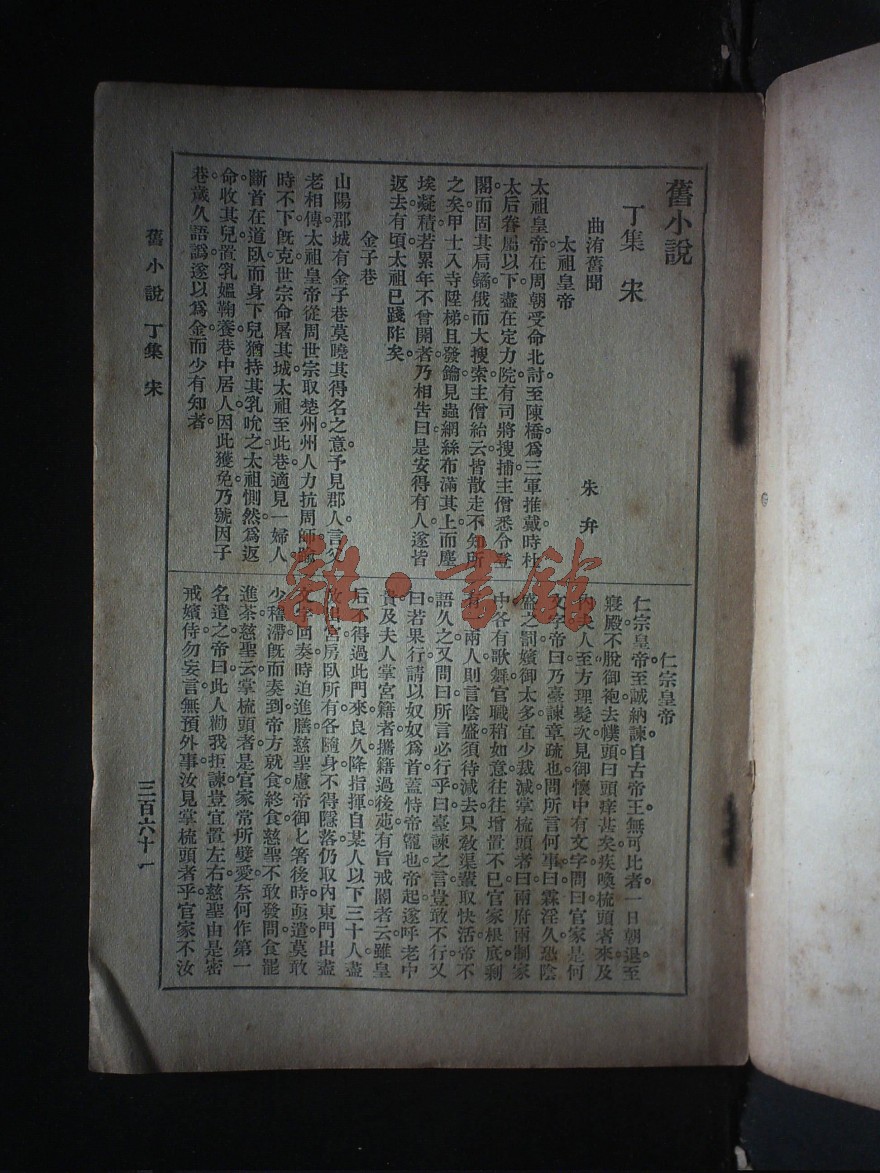 舊小說
丁集　宋
曲洧舊聞
朱弁
太祖皇帝
太祖皇帝在周朝受命北討至陳橋為三軍推戴時杜
太后眷屬以下盡在定力院有司將搜捕主僧悉令登
閣而固其扃鐍俄而大搜索主僧紿云皆散走不知所
之矣甲士入寺陞梯且發鑰見蟲網絲布滿其上而塵
埃凝積若累年不曾開者乃相告曰是安得有人遂皆
返去有頃太祖已踐阼矣。
金子巷
山陽郡城有金子巷莫曉其得名之意予見郡人言父
老相傳太祖皇帝從周世宗取楚州州人力抗周師踰
時不下旣克世宗命屠其城太祖至此巷適見一婦人
斷首在道臥而身下兒猶持其乳吮之太祖惻然為返
命收其兒置乳媼鞠養巷中居人因此獲免乃號因子
巷歲久語譌遂以為金而少有知者。
仁宗皇帝
仁宗皇帝至誠納諫自古帝王無可比者一日朝退至
寢殿不脫御袍去幞頭曰頭痒甚矣疾喚梳頭者來及
夫人至方理髮次見御懷中有文字問曰官家是何
文字帝曰乃臺諫章疏也問所言何事曰霖淫久恐陰
盛之罰嬪御太多宜少裁減掌梳頭者曰兩府兩制家
中各有歌舞官職稍如意往往增置不已官家根底剩
有一兩人則言陰盛須待減去只敎渠輩取快活帝不
語久之又問曰所言必行乎曰臺諫之言豈敢不行又
曰若果行請以奴奴為首蓋恃帝寵也帝起遂呼老中
貴及夫人掌宮籍者攜籍過後苑有旨戒閽者云雖皇
后不得過此門來良久降指揮自某人以下三十人盡
放出宮房臥所有各隨身不得隱落仍取內東門出盡
文字回奏時迫進膳慈聖慮帝御匕箸後時亟遣莫敢
少稽滯旣而奏到帝方就食終食慈聖不敢發問食罷
進茶慈聖云掌梳頭者是官家常所嬖愛奈何作第一
名遣之帝曰此人勸我拒諫豈宜置左右慈聖由是密
戒嬪侍勿妄言無預外事汝見掌梳頭者乎官家不汝
舊小說　丁集　宋
三百六十一
雜·書館